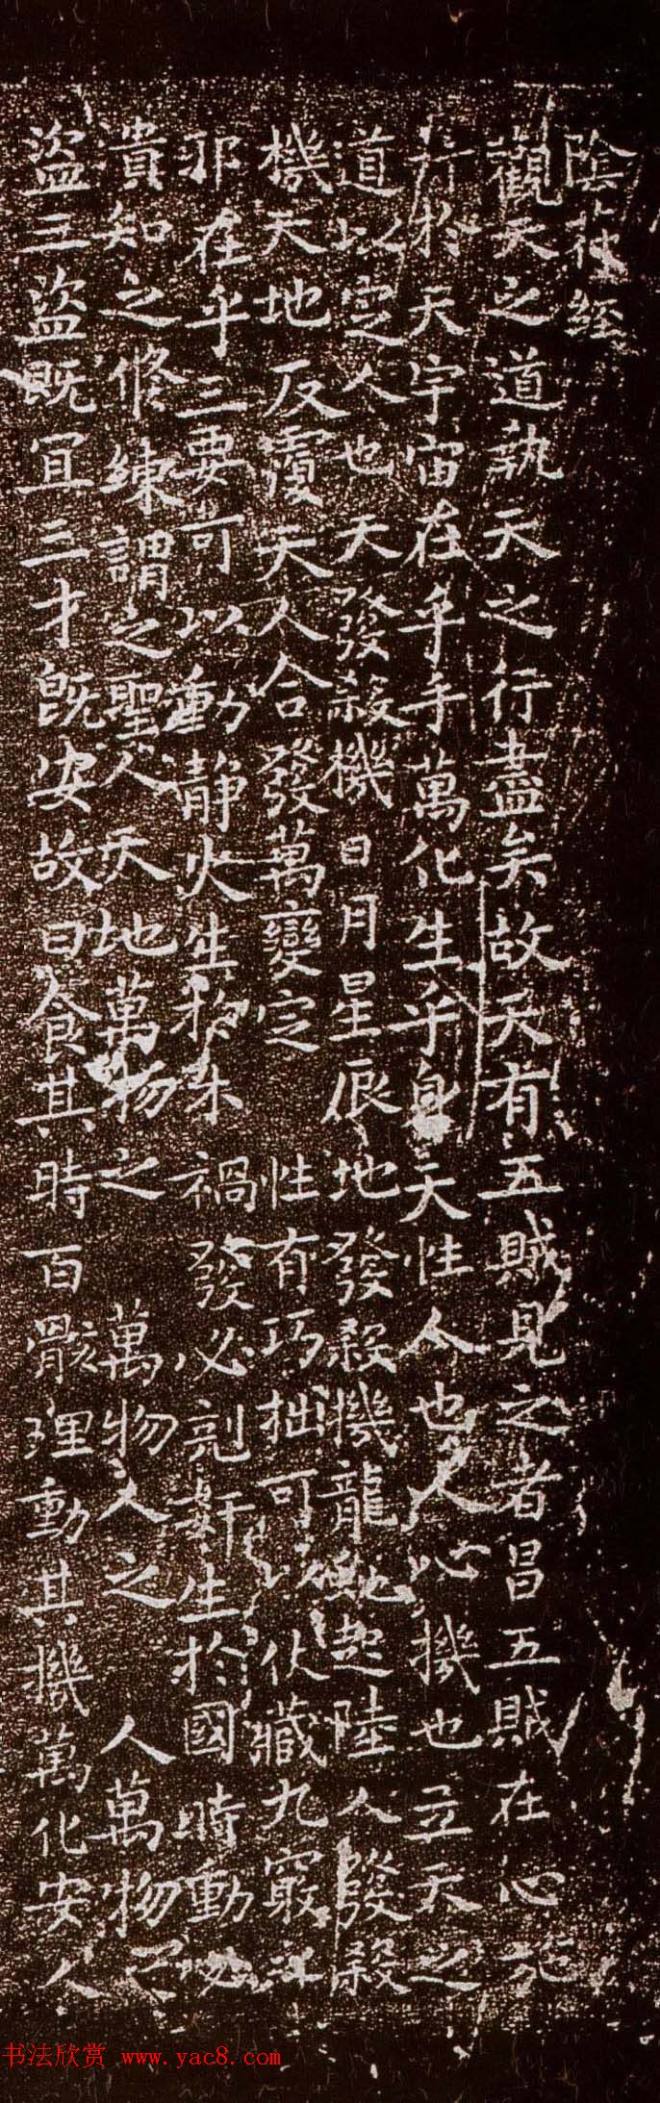 陰符经
觀天之道執天之行盡矣故天有五賊見之者昌五賊在心施
行於天宇宙在乎手萬化生乎身天性人也人心機也立天之
道以定人也天發殺機日月星辰地發殺機龍虵起陸人發殺
機天地反覆天人合發萬變定性有巧拙可以伏藏九竅之
邪在乎三要可以動静火生於木禍發必剋姧生於國時動必
貴知之脩練謂之聖人天地萬物之萬物人之人萬物之
盜三盜既宜三才既安故曰食其時百骸理動其機萬化安人
书法欣赏 www.yac8.com